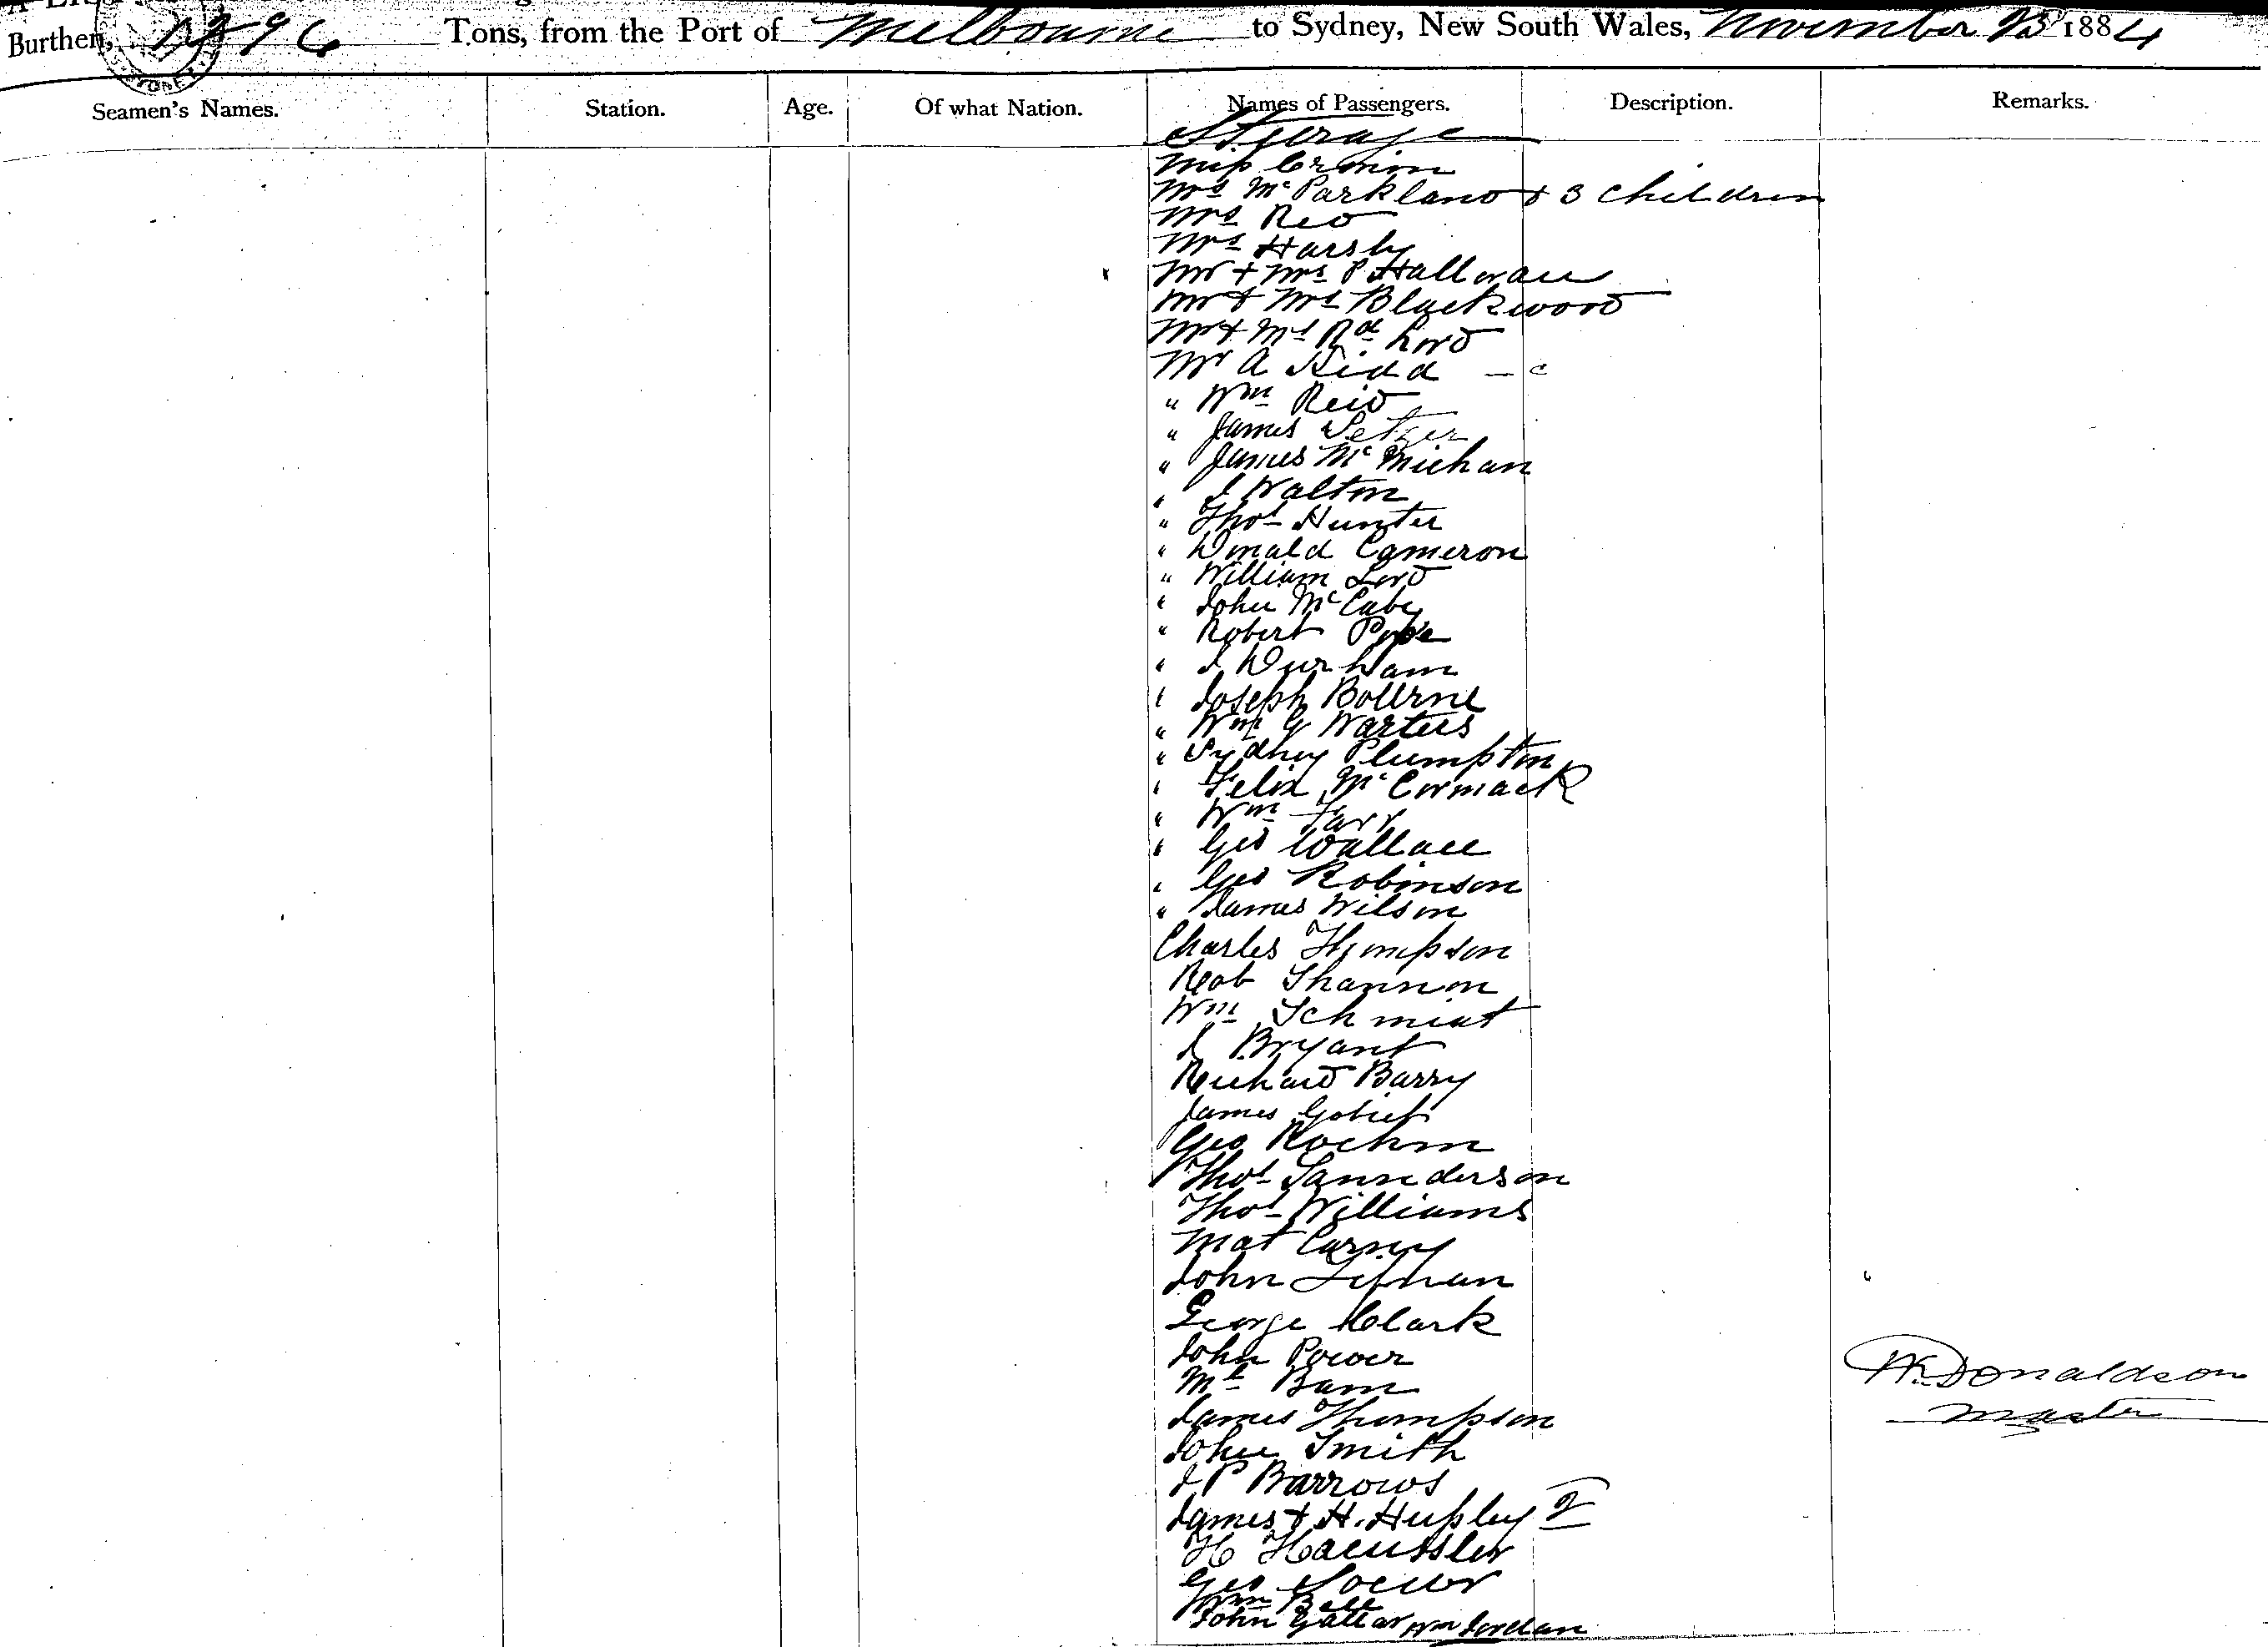 Burthen, Tons, from the Port of Melbourne to Sydney, New South Wales, November 1884
Seamen's Names. Station. Age. Of what Nation. Names of Passengers. Description. Remarks.
Steerage
Miss
Mrs McParkland + 3 children
Mrs Reo
Mrs Harsby
Mr + Mrs P Halloran
Mr + Mrs Blackwood
Mr + Mrs Rd Lord
Mr A Kidd
" Wm Reid
" James
" James McMichan
" J Walton
" Thos Hunter
" Donald Cameron
" William Lord
" John McCabe
" Robert Pope
" J Durham
" Joseph Bourne
" Wm G Warters
" Sydney Plumpton
" Felix McCormack
" Wm Farr
" Geo Wallace
" Geo Robinson
" James Wilson
Charles Thompson
Rob Shannon
Wm Schmidt
J Bryant
Richard Barry
James
Geo
Thos Saunderson
Thos Williams
Mat Carney
John
George Clark
John Power
Bam
James Thompson
John Smith
J P Barrows
James + H. Hussley 2
H Haeussler
Geo
Wm Bell
John Wm Jordan
W. Donaldson
Master